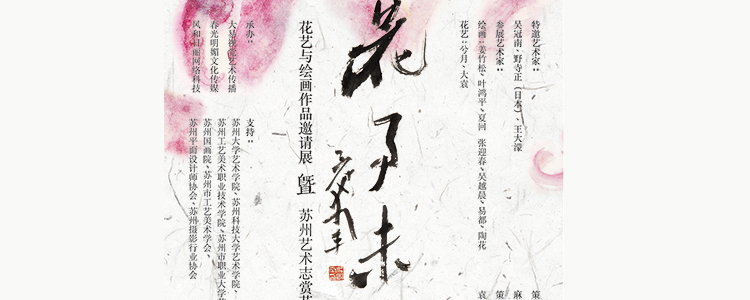 特邀艺术家：
吴冠南、野寺正（日本）、王大濛
参展艺术家：
绘画：姜竹松、叶鸿平、夏回 张迎春、吴越晨、易都、陶花
花艺：兮月、大袁
策
麻
策
袁
花了未
花艺与绘画作品邀请展 暨 苏州艺术志赏
承办：
大易视觉艺术传播
春光明媚文化传媒
风和日丽网络科技
支持：
苏州大学艺术学院、苏州科技大学艺术学院、
苏州工艺美术职业技术学院、苏州市职业大学
苏州国画院、苏州市工艺美术学会、
苏州平面设计师协会、苏州摄影行业协会